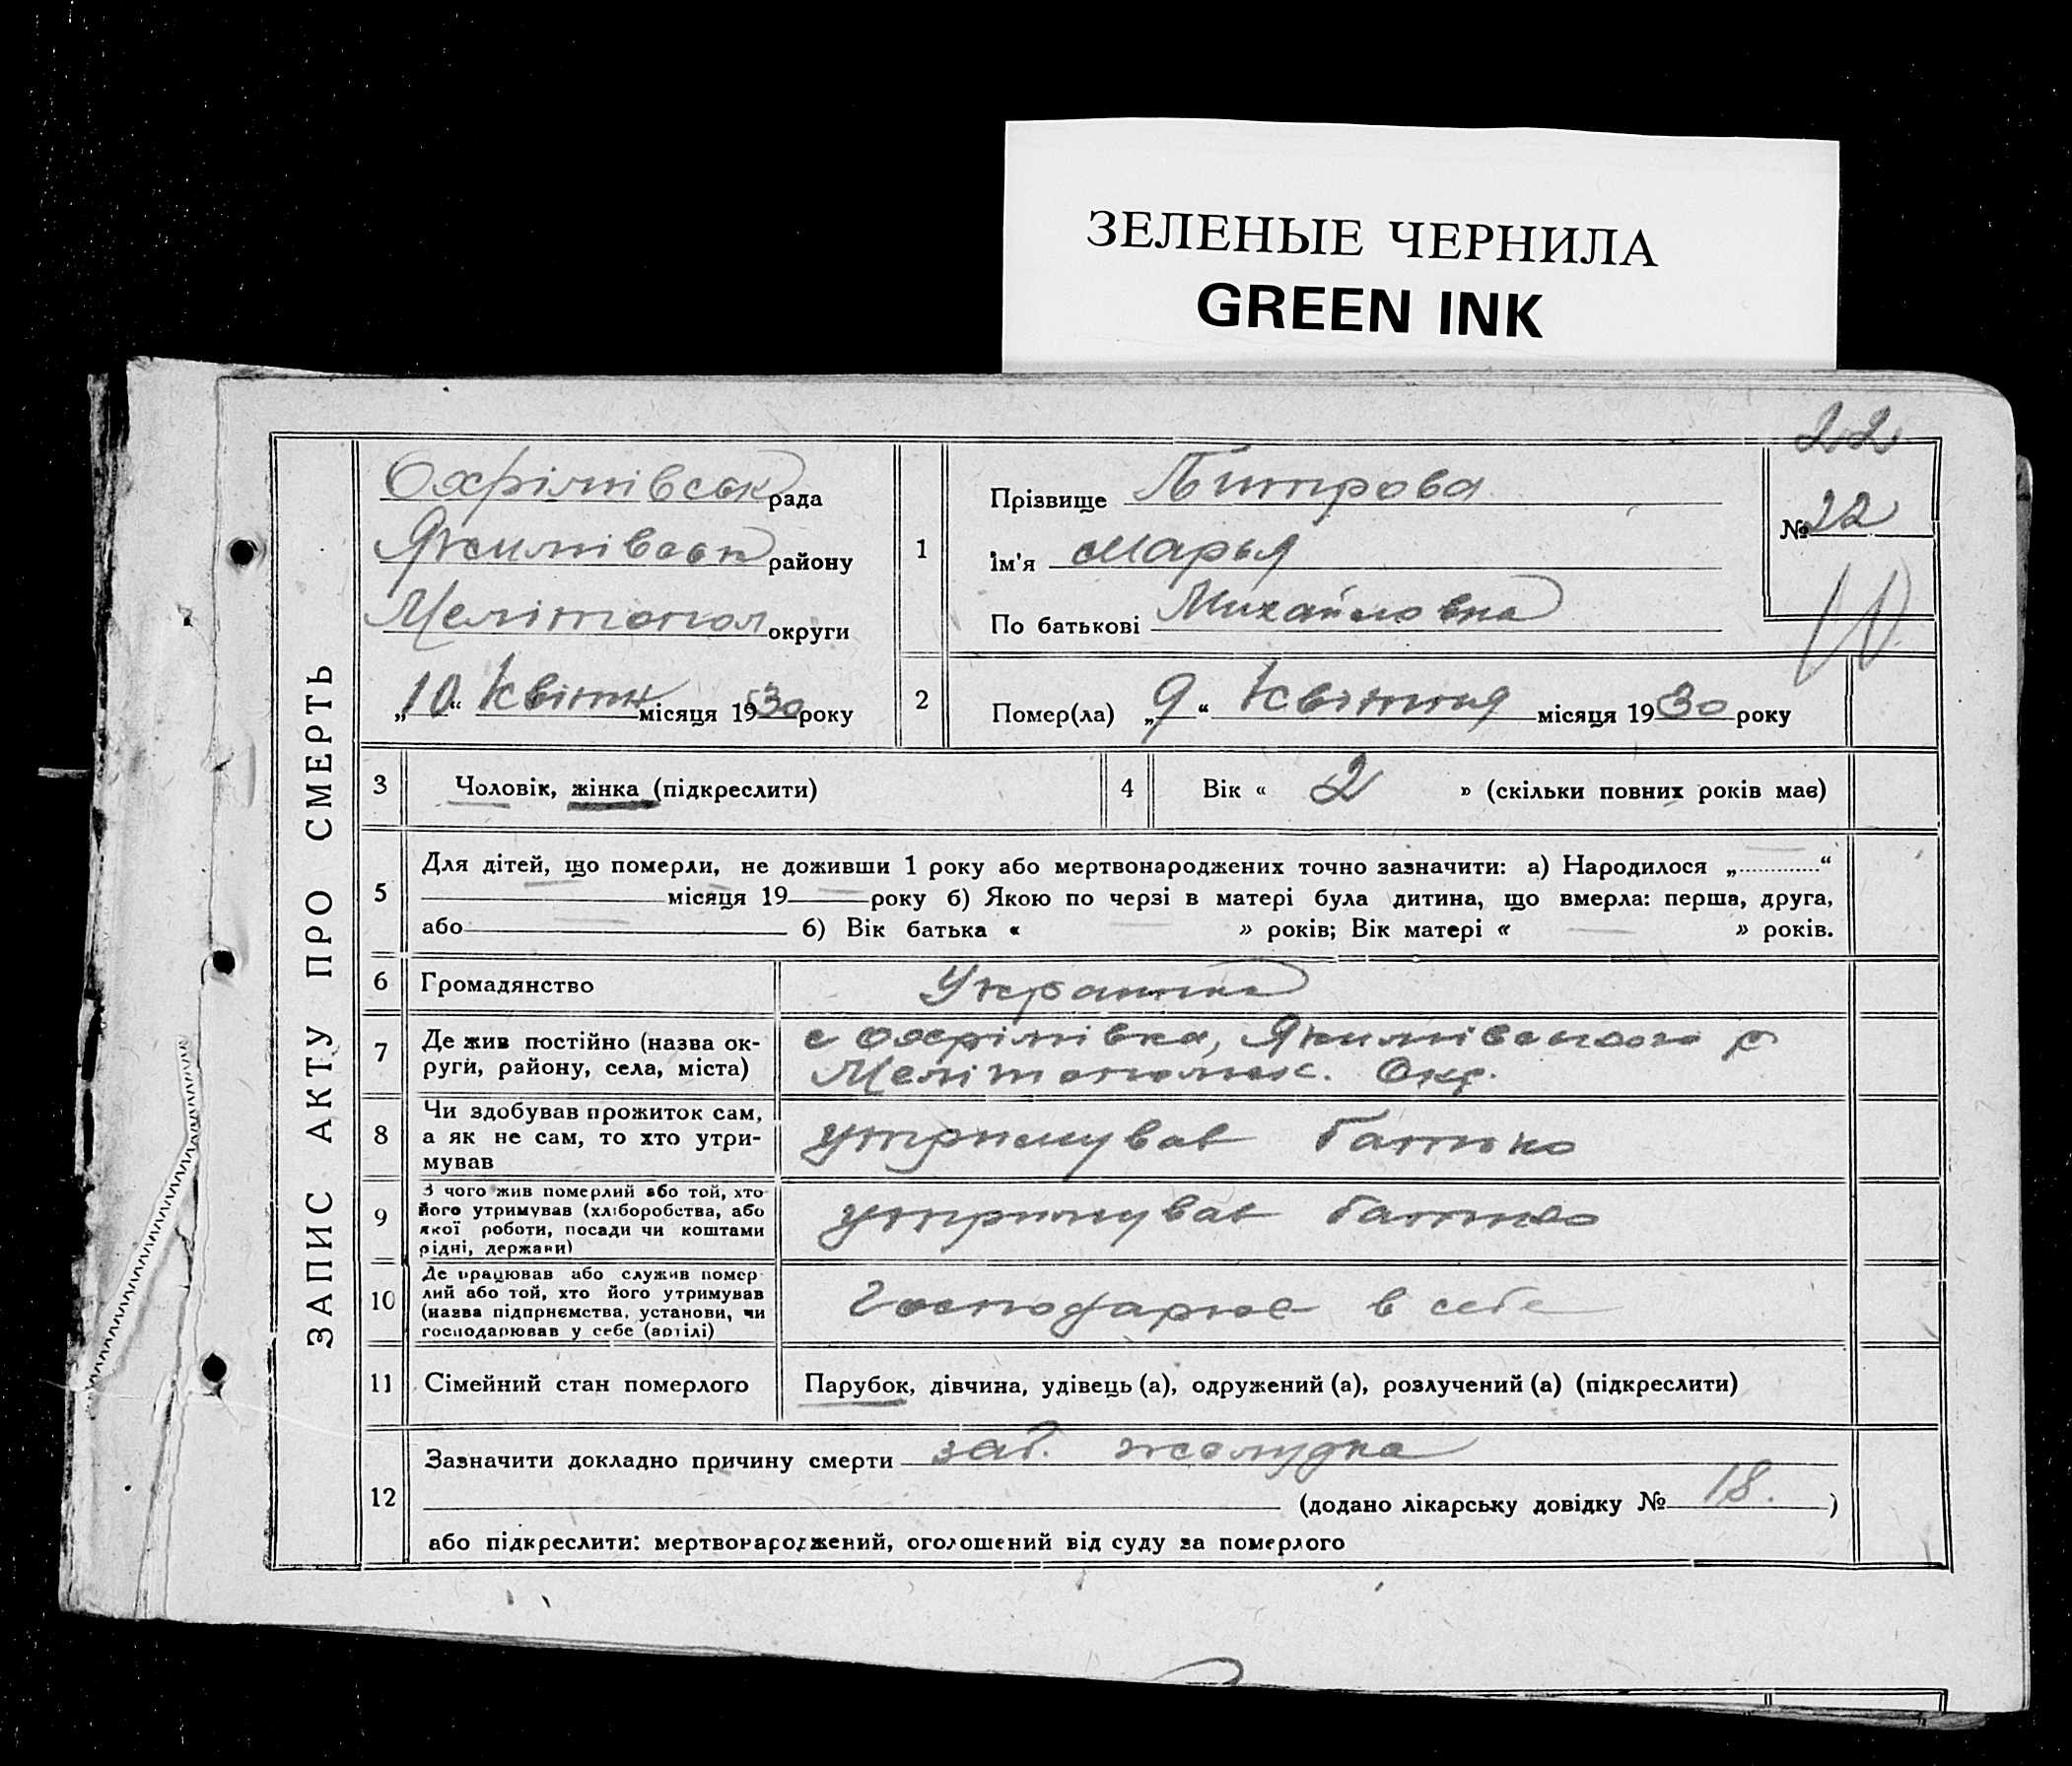 ЗЕЛЕНЫЕ ЧЕРНИЛА
GREEN INK
22
ЗАПИС АКТУ ПРО СМЕРТЬ
Охрімівськ рада
Якимівськ району
Мелітопол округи
„10“ Квітн місяця 1930 року
1
Прізвище Питрова
Ім'я Марья
По батькові Михайловна
№ 22
2
Помер(ла) „9“ Квітня місяця 1930 року
3
Чоловік, жінка (підкреслити)
4
Вік « 2 » (скільки повних років має)
5
Для дітей, що померли, не доживши 1 року або мертвонароджених точно зазначити: а) Народилося „.............“
місяця 19 — року б) Якою по черзі в матері була дитина, що вмерла: перша, друга,
або — б) Вік батька « — » років; Вік матері « — » років.
6
Громадянство
Украинка
7
Де жив постійно (назва ок-
руги, району, села, міста)
с Охрімівка, Якимівського р
Мелітопольск. Окр.
8
Чи здобував прожиток сам,
а як не сам, то хто утри-
мував
утримував батько
9
З чого жив померлий або той, хто
його утримував (хліборобства, або
якої роботи, посади чи коштами
рідні, держави)
утримував батько
10
Де працював або служив помер-
лий або той, хто його утримував
(назва підприємства, установи, чи
господарював у себе (артілі)
Господарює в себе
11
Сімейний стан померлого
Парубок, дівчина, удівець (а), одружений (а), розлучений (а) (підкреслити)
12
Зазначити докладно причину смерти заб. желудка
(додано лікарську довідку № 18. )
або підкреслити: мертвонароджений, оголошений від суду за померлого